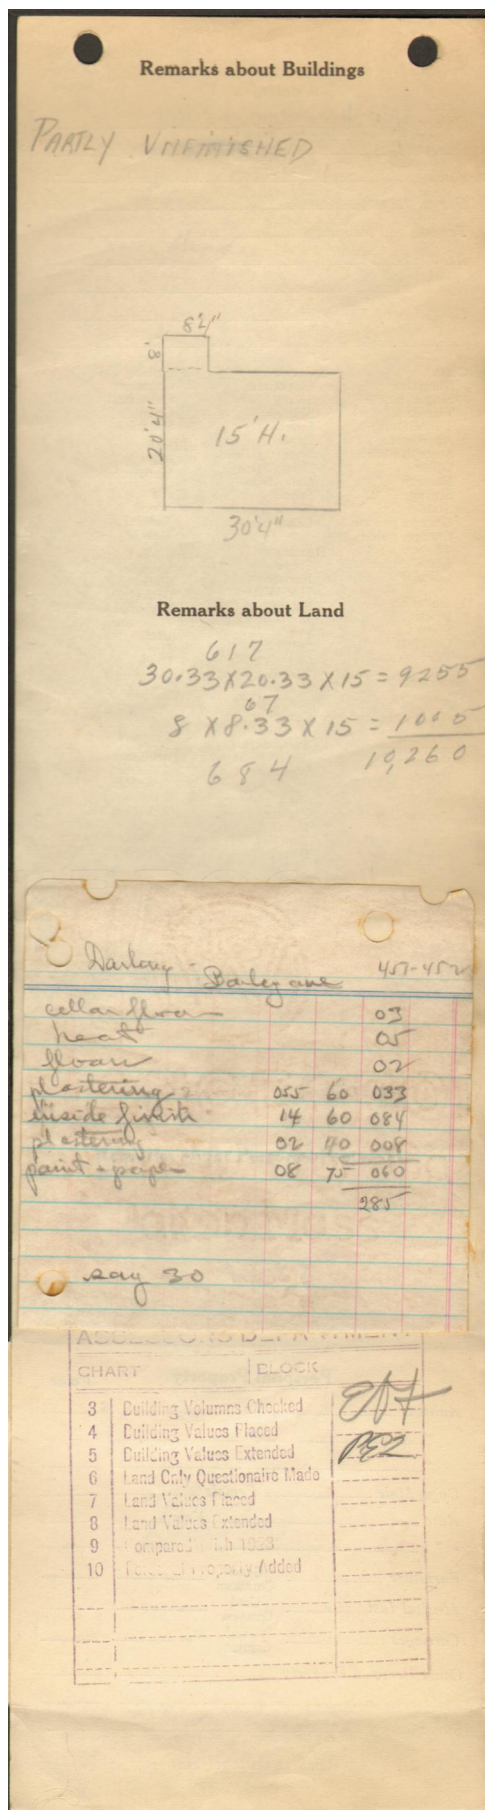 Remarks about Buildings
PARTLY UNFINISHED
8'4"
8'
20'4"
15'H.
30'4"
Remarks about Land
617
30.33 X 20.33 X 15 = 9255
67
8 X 8.33 X 15 = 1005
684 10,260
457-452
cellar floor 03
heat 05
floors 02
plastering 055 60 033
inside finish 14 60 084
plastering 02 40 008
paint + paper 08 75 060
285
say 30
ASSESSORS DEPARTMENT
CHART BLOCK
3 Building Volumns Checked
4 Building Values Placed
5 Building Values Extended
6 Land Only Questionaire Made
7 Land Values Placed
8 Land Values Extended
9 Compared With 1923
10 Personal Property Added